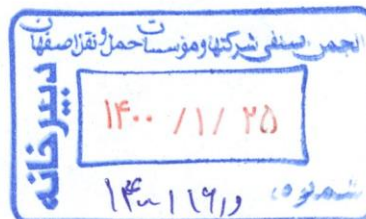 انجمن صنفی شرکتها و موسسات حمل و نقل اصفهان
دبیرخانه
۱۴۰۰ /۱/ ۲۵
شماره: